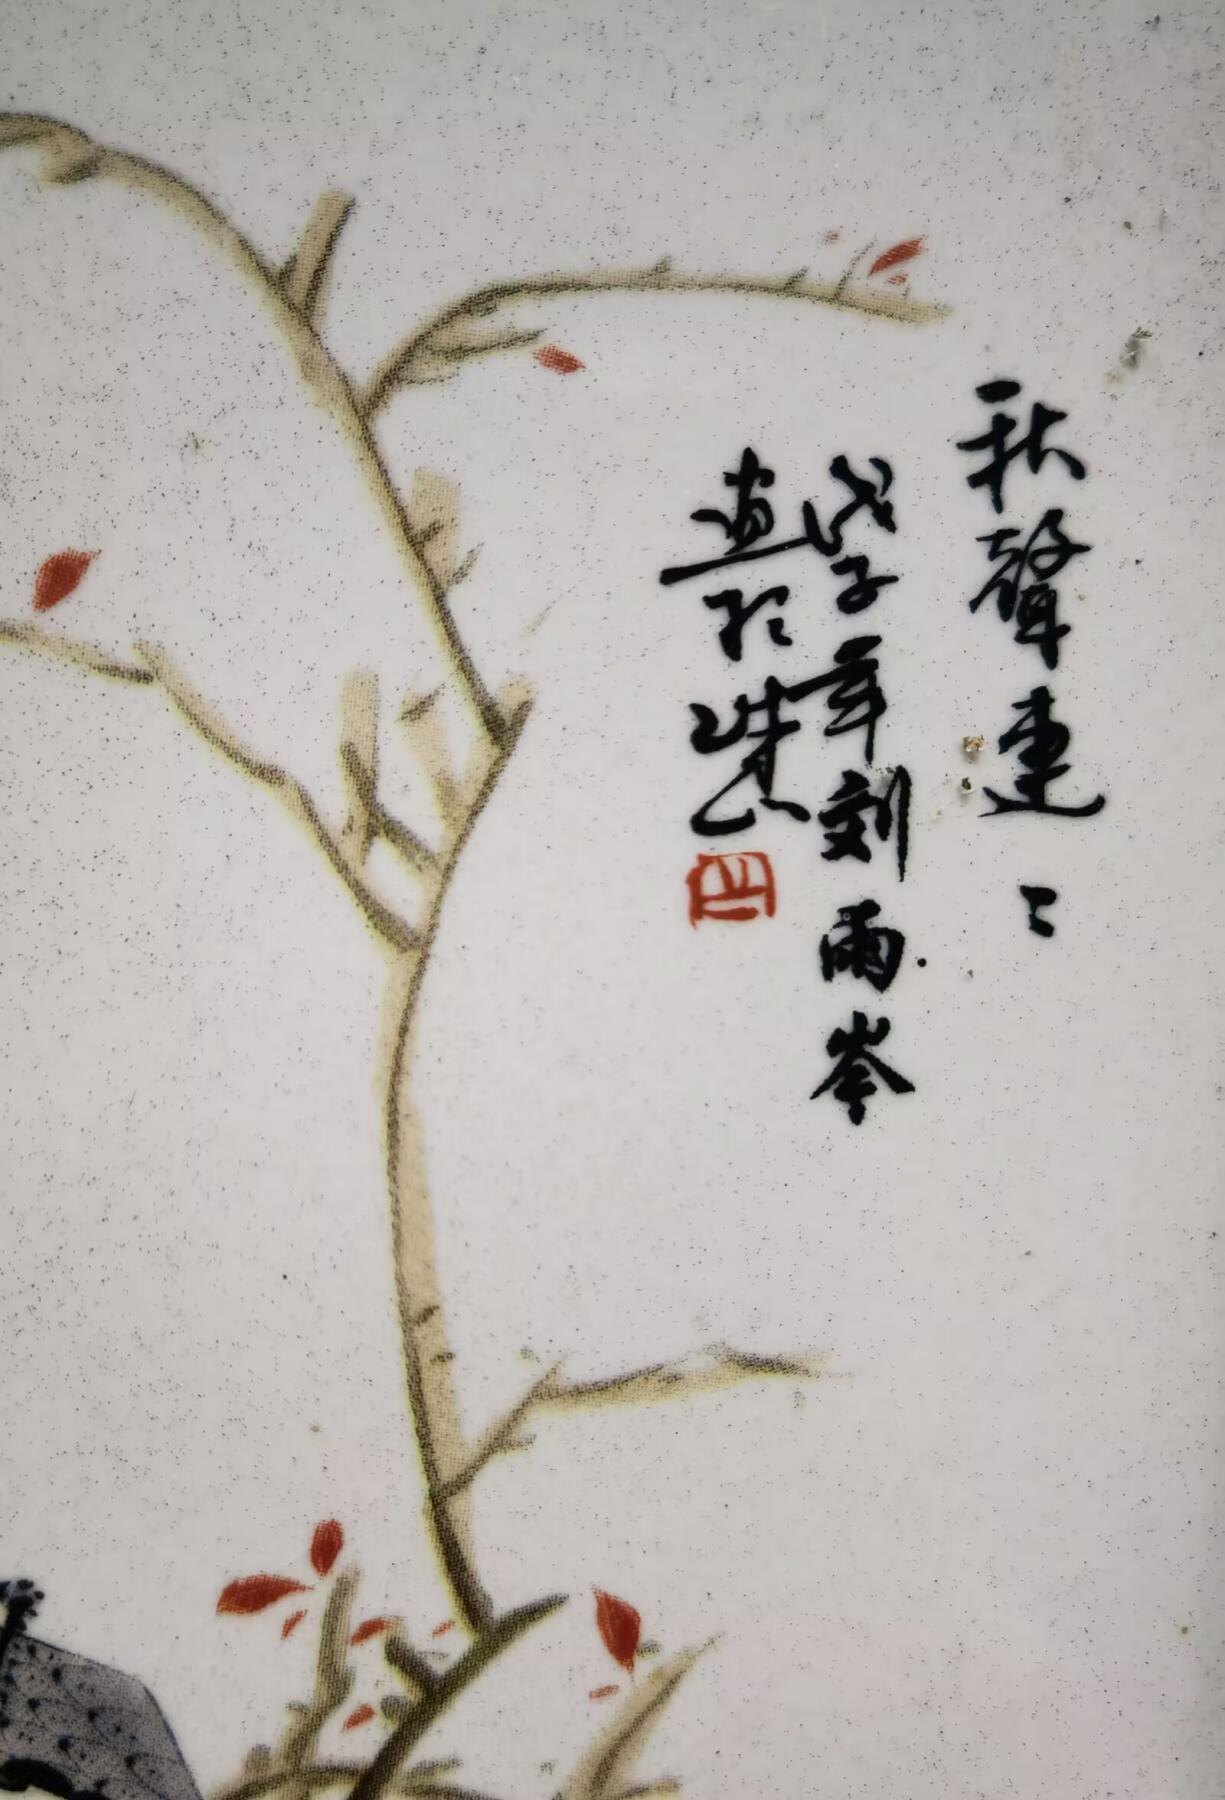 秋聲連々
戊子年刘雨岑
畫於珠山